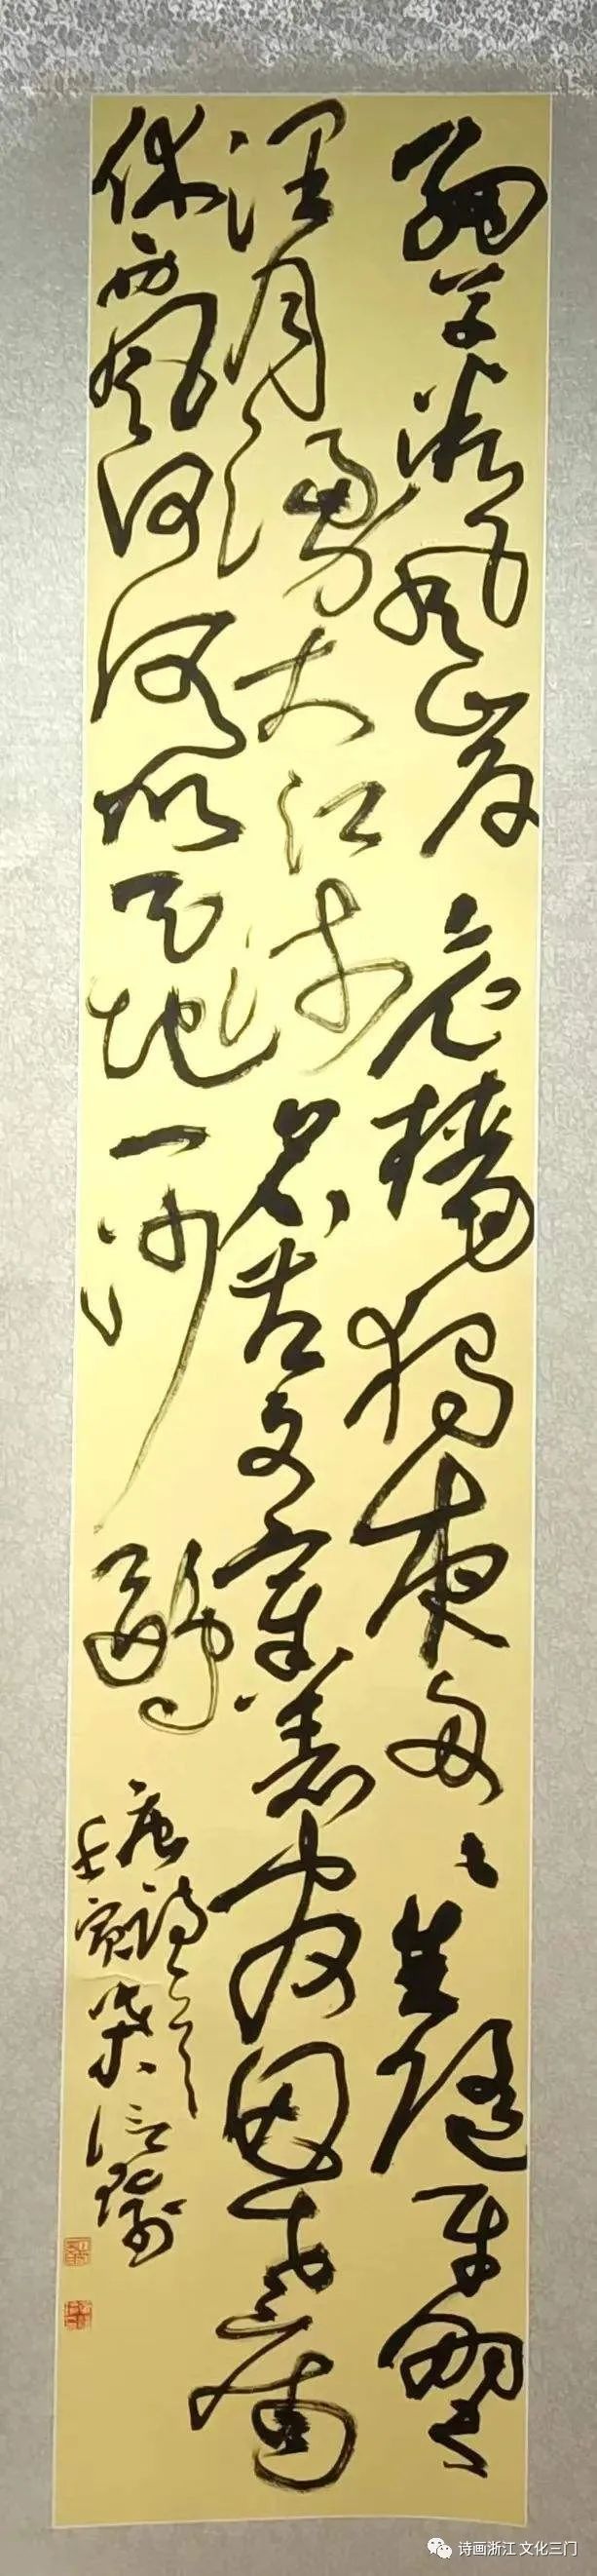 細草微風岸危檣獨夜舟星隨平野
闊月湧大江流名豈文章著官因老病
休飄飄何所似天地一沙鷗
唐詩一首
壬寅
诗画浙江 文化三门